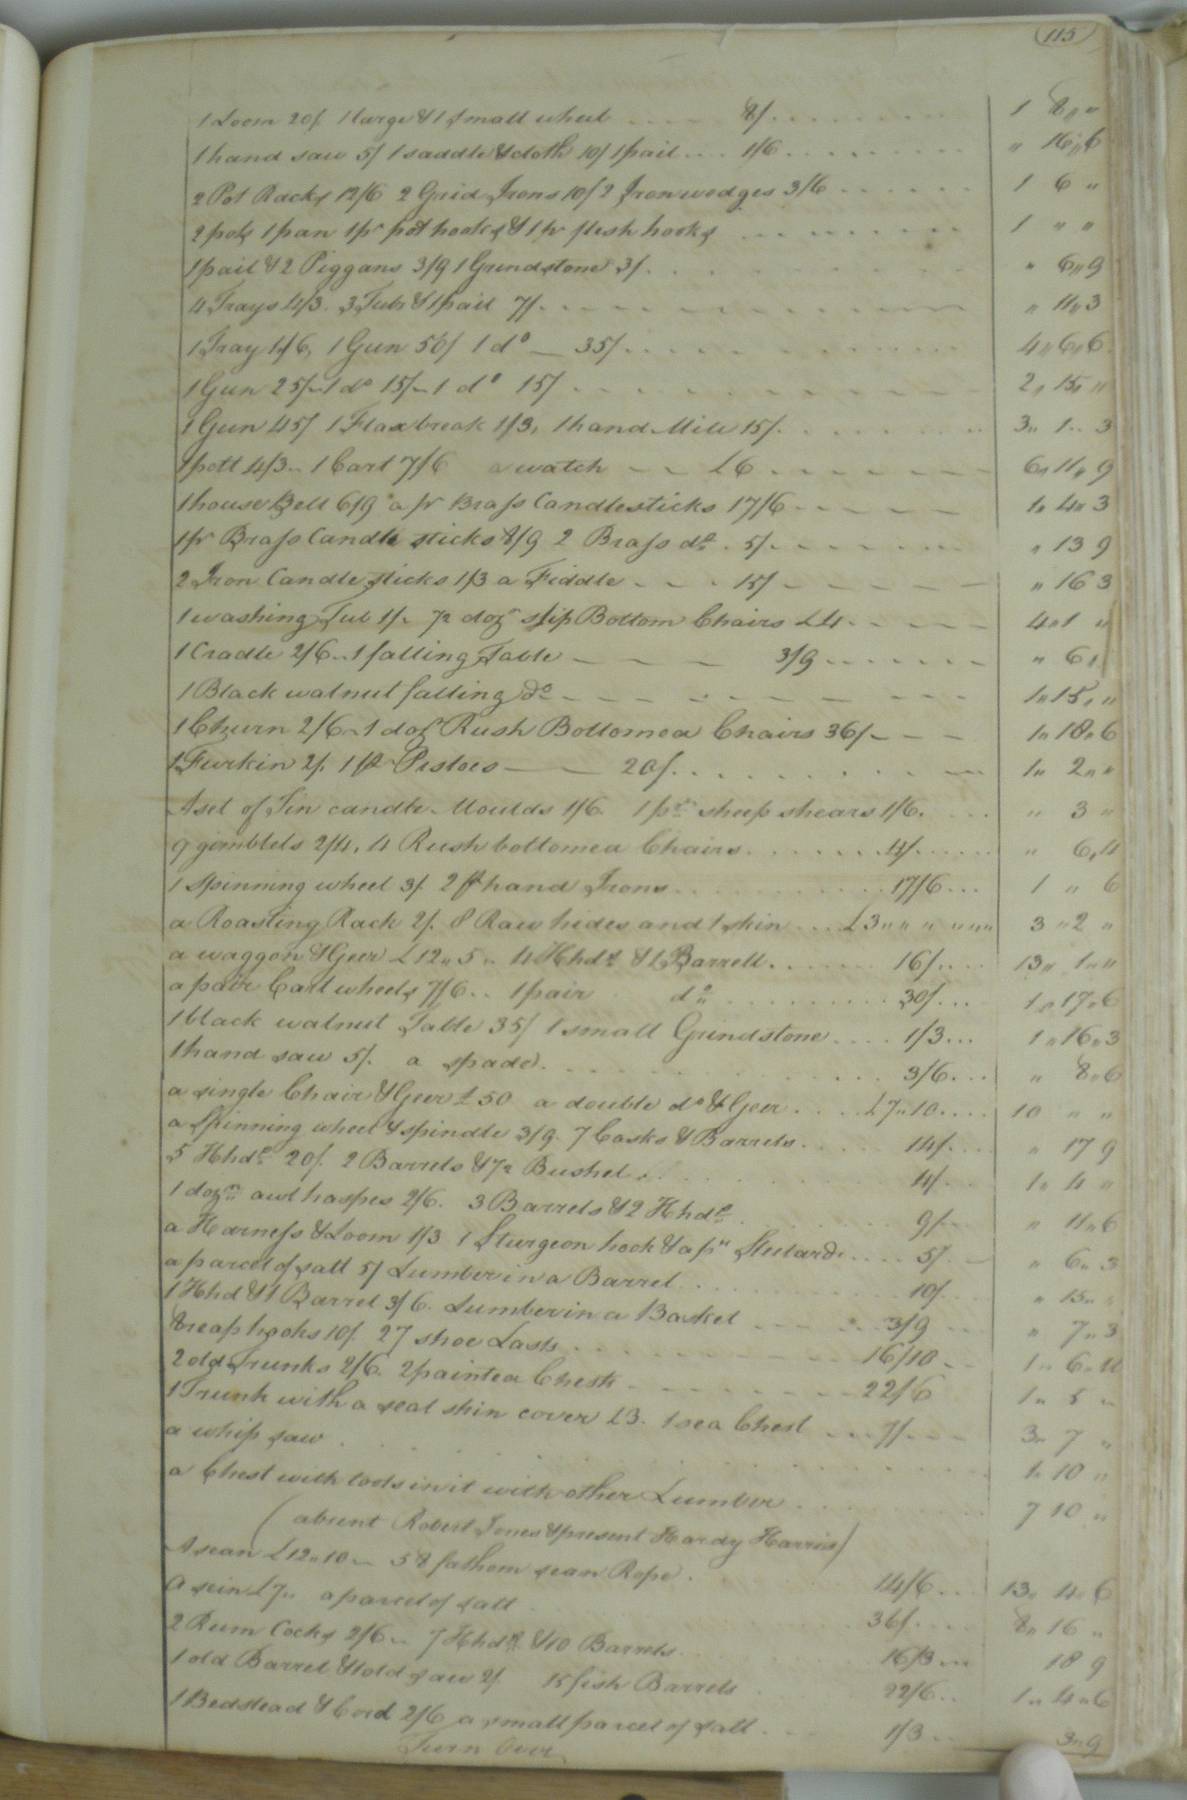 115
1 Loom 20/. 1 large & 1 small wheel .... 8/. ........ 1 8 „ „
1 hand saw 5/ 1 saddle & cloth 10/ 1 pail ... 1/6 ........ „ 16 „ 6
2 Pot Racks 12/6 2 Grid Irons 10/ 2 Iron wedges 3/6 ...... 1 6 „
2 pots 1 pan 1 pr pot hooks & 1 pr flesh hooks ........ 1 „ „
1 pail & 2 Piggans 3/9 1 Grindstone 3/. ........ „ 6 „ 9
4 Trays 4/3. 3 Tubs & 1 pail 7/. ........ „ 11 „ 3
1 Tray 1/6, 1 Gun 50/ 1 do — 35/. ........ 4 „ 6 „ 6
1 Gun 25/– 1 do 15/– 1 do 15/ ........ 2 „ 15 „ „
1 Gun 45/ 1 Flax break 1/3, 1 hand Mill 15/. ........ 3 „ 1 „ 3
1 pott 4/3 „ 1 Cart 7/6 a watch — — £6 ........ 6 „ 11 „ 9
1 house Bell 6/9 a pr Brass Candlesticks 17/6 ..... 1 „ 4 „ 3
1 pr Brass Candle sticks 8/9 2 Brass do. 5/. ....... „ 13 9
2 Iron Candle sticks 1/3 a Fiddle — — . 15/ — — — — „ 16 3
1 washing Tub 1/. ½ dozn slip Bottom Chairs £4 ..... 4 „ 1 „
1 Cradle 2/6 „ 1 falling Table — — — 3/9 ....... „ 6 „
1 Black walnut falling do — — — — — — — 1 „ 15 „ „
1 Churn 2/6 „ 1 dozn Rush Bottomed Chairs 36/ — — — 1 „ 18 „ 6
1 Furkin 2/. 1 pr Pistols — — 20/. ........ 1 „ 2 „ „
A set of Tin candle Moulds 1/6. 1 pr sheep shears 1/6. .... „ 3 „
9 gimblets 2/4, 4 Rush bottomed Chairs ....... 4/. ..... „ 6 „ 4
1 Spinning wheel 3/. 2 pr hand Irons ........ 17/6 ... 1 „ 6
a Roasting Rack 2/. 8 Raw hides and 1 skin .... £3 „ „ „ „ „ 3 „ 2 „
a waggon & Geer £12 „ 5 „ 4 Hhds & 1 Barrell ....... 16/. .... 13 „ 1 „ „
a pair Cart wheels 7/6 .. 1 pair do ......... 30/. ... 1 „ 17 „ 6
1 black walnut Table 35/ 1 small Grindstone .... 1/3 ... 1 „ 16 „ 3
1 hand saw 5/. a spade. ........ 3/6 .... „ 8 „ 6
a single Chair & Geer £50 a double do & Geer .... £7 „ 10 .... 10 „ „
a Spinning wheel & spindle 3/9. 7 Casks & Barrels ..... 14/. .... „ 17 9
5 Hhds 20/. 2 Barrels & ½ Bushel ......... 4/ .... 1 „ 4 „
1 dozn awl haspes 2/6. 3 Barrels & 2 Hhds ....... 9/ ... „ 11 „ 6
a Harness & Loom 1/3 1 Sturgeon hook & a pr Steelards .... 5/ — „ 6 „ 3
a parcel of salt 5/ Lumber in a Barrel ........ 10/ „ 15 „
1 Hhd & 1 Barrel 3/6. Lumber in a Basket — — — 3/9 ... „ 7 „ 3
8 reap hooks 10/. 27 shoe Lasts ........ 16/10 .. 1 „ 6 „ 10
2 old Trunks 2/6. 2 painted Chests ....... 22/6 1 „ 5 „
1 Trunk with a seal skin cover £3. 1 sea Chest ... 7/. ... 3 „ 7 „
a whip saw ........ 1 „ 10 „
a Chest with tools in it with other Lumber ........ 7 10 „
(absent Robert Jones & present Hardy Harris)
A sean £12 „ 10 — 58 fathom sean Rope . 14/6 ... 13 „ 4 „ 6
a sein £7 „ a parcel of salt 36/. .... 8 „ 16 „
2 Rum Cocks 2/6 „ 7 Hhds & 10 Barrels 16/3 ... 18 9
1 old Barrel & 1 old saw 2/ 15 fish Barrels 22/6 .. 1 „ 4 „ 6
1 Bedstead & Cord 2/6 a small parcel of salt . 1/3 .. 3 „ 9
Turn Over